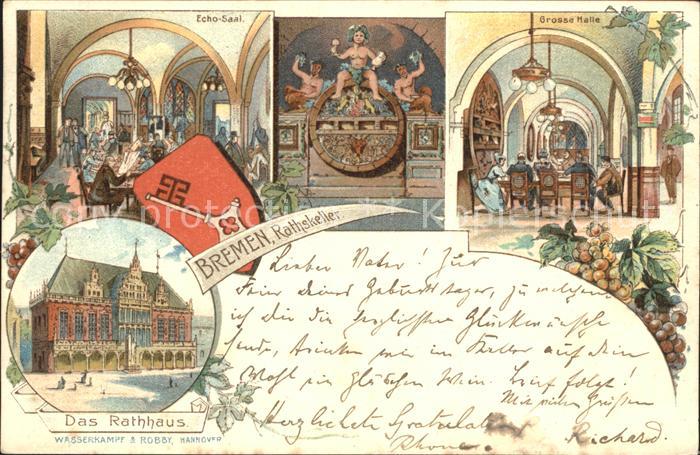 Echo-Saal.
Grosse Halle
BREMEN, Rathskeller.
Lieber Vater! Zur
Feier deines Geburtstages, zu welchem
ich dir die herzlichsten Glückwünsche
sende, trinken wir im Keller auf dein
Wohl ein Gläschen Wein. Brief folgt!
Mit vielen Grüßen
Herzlichste Gratulation
Richard.
Das Rathhaus.
WASSERKAMPF & ROBBY, HANNOVER